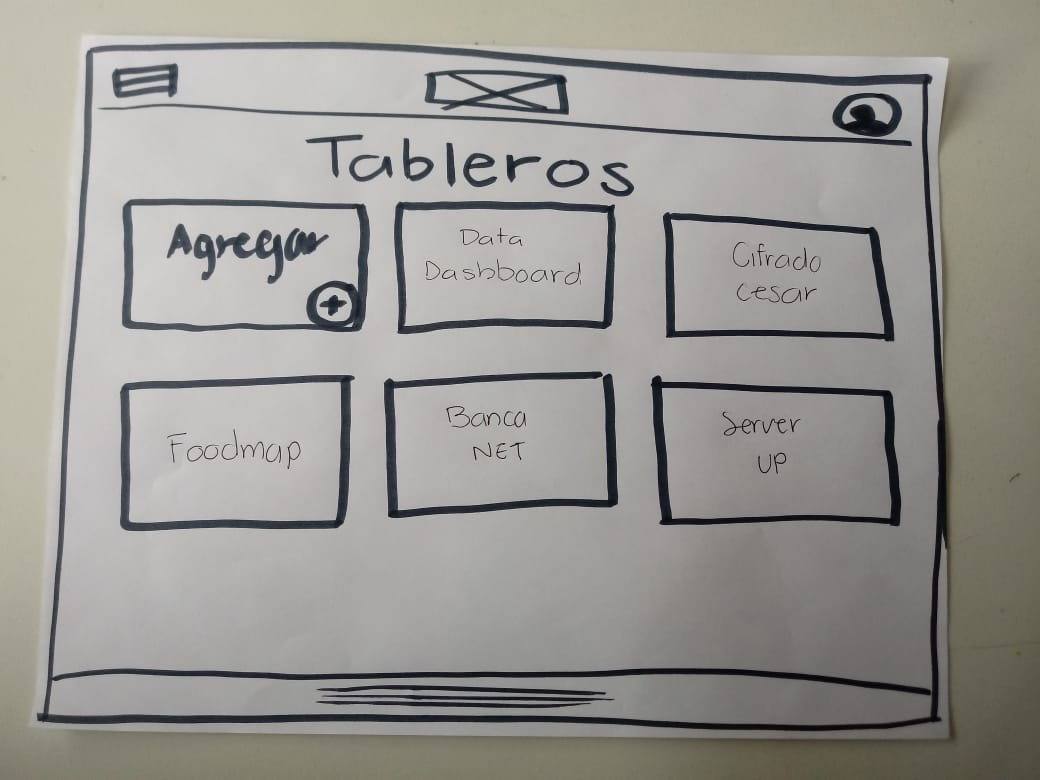 Tableros
Agregar
Data
Dashboard
Cifrado
cesar
Foodmap
Banca
NET
Server
UP